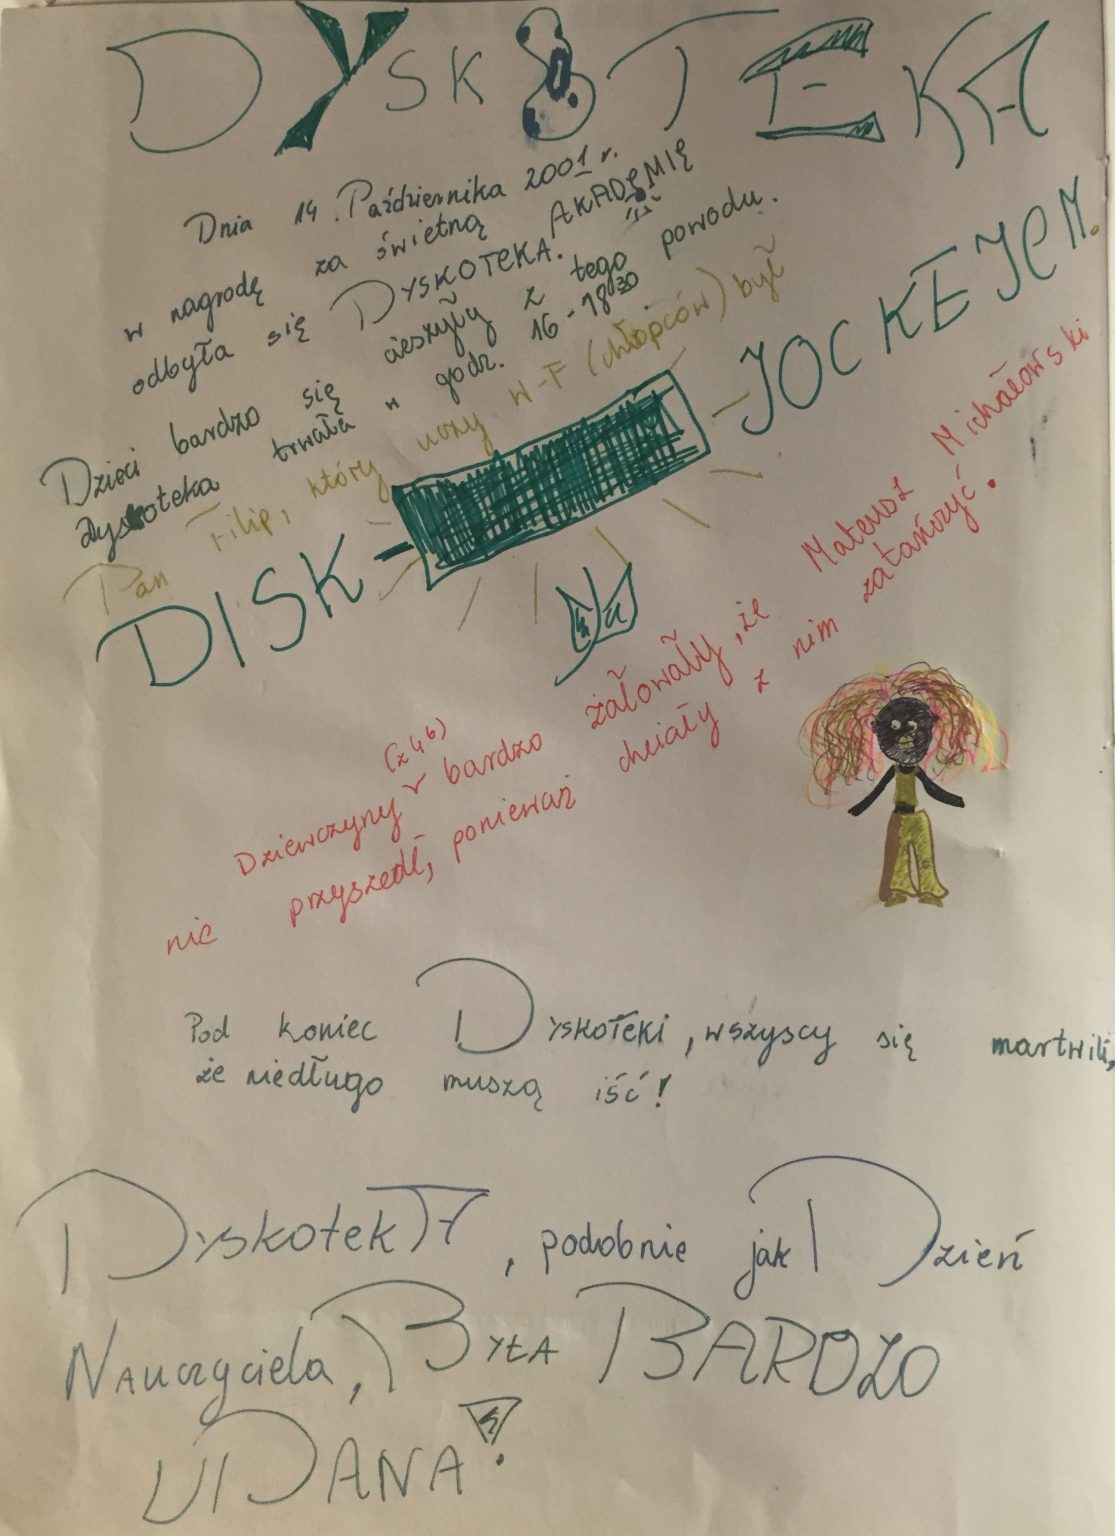 DYSKOTEKA
Dnia 14 Października 2001 r.
w nagrodę za świetną AKADEMIĘ
odbyła się DYSKOTEKA.
Dzieci bardzo się cieszyły z tego powodu.
Dyskoteka trwała w godz. 16-18 30
Pan Filip, który uczy w-F (chłopców) był
DISK - JOCKEJEM.
Dziewczyny (z 4b) bardzo żałowały, że Mateusz Michałowski
nie przyszedł, ponieważ chciały z nim zatańczyć.
Pod koniec Dyskoteki, wszyscy się martwili,
że niedługo muszą iść!
DyskotekA, podobnie jak Dzień
Nauczyciela, BYŁA BARDZO
UDANA!